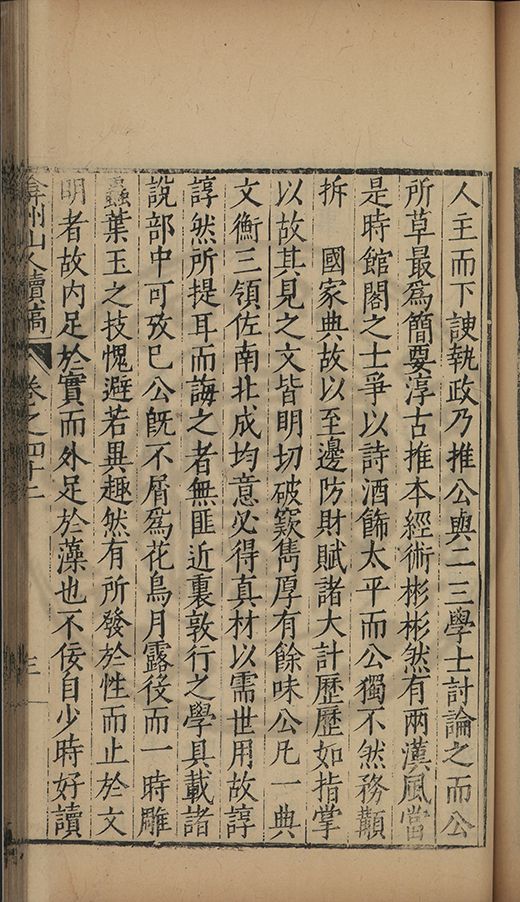 人主而下諛執政乃推公與二三學士討論之而公
所草最爲簡要淳古推本經術彬彬然有兩漢風當
是時館閣之士爭以詩酒飾太平而公獨不然務顓
拆　國家典故以至邊防財賦諸大計歷歷如指掌
以故其見之文皆明切破窾雋厚有餘味公凡一典
文衡三領佐南北成均意必得真材以需世用故諄
諄然所提耳而誨之者無匪近裏敦行之學具載諸
說部中可攷已公旣不屑爲花鳥月露後而一時雕
蟲葉玉之技愧避若異趣然有所發於性而止於文
明者故内足於實而外足於藻也不佞自少時好讀
弇州山人續稿　卷之四十二　三